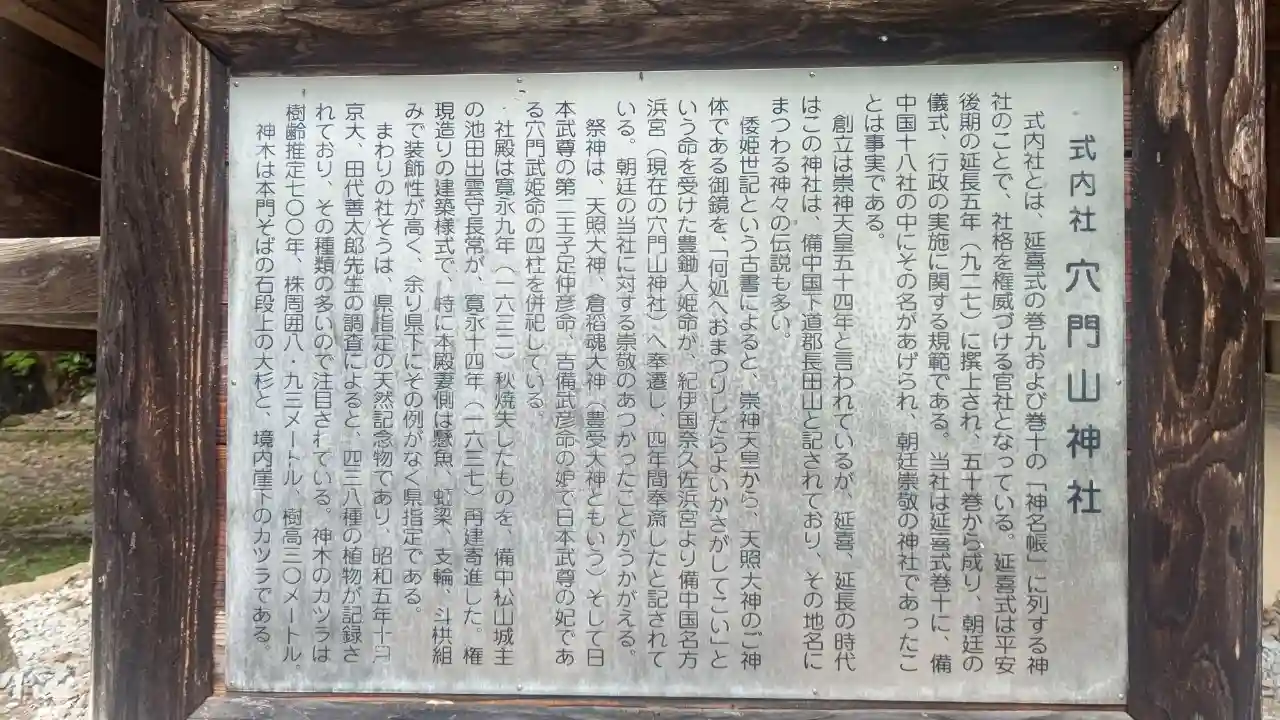 式内社 穴門山神社
式内社とは、延喜式の巻九および巻十の「神名帳」に列する神
社のことで、社格を権威づける官社となっている。延喜式は平安
後期の延長五年（九二七）に撰上され、五十巻から成り、朝廷の
儀式、行政の実施に関する規範である。当社は延喜式巻十に、備
中国十八社の中にその名があげられ、朝廷崇敬の神社であったこ
とは事実である。
創立は崇神天皇五十四年と言われているが、延喜、延長の時代
はこの神社は、備中国下道郡長田山と記されており、その地名に
まつわる神々の伝説も多い。
倭姫世記という古書によると、崇神天皇から、天照大神のご神
体である御鏡を、「何処へおまつりしたらよいかさがしてこい」と
いう命を受けた豊鋤入姫命が、紀伊国奈久佐浜宮より備中国名方
浜宮（現在の穴門山神社）へ奉遷し、四年間奉斎したと記されて
いる。朝廷の当社に対する崇敬のあつかったことがうかがえる。
祭神は、天照大神、倉稻魂大神（豊受大神ともいう）そして日
本武尊の第二王子足仲彦命、吉備武彦命の娘で日本武尊の妃であ
る穴門武姫命の四柱を併祀している。
社殿は寛永九年（一六三二）秋焼失したものを、備中松山城主
の池田出雲守長常が、寛永十四年（一六三七）再建寄進した。権
現造りの建築様式で、時に本殿妻側は懸魚、虹梁、支輪、斗栱組
みで装飾性が高く、余り県下にその例がなく県指定である。
まわりの社そうは、県指定の天然記念物であり、昭和五年十月
京大、田代善太郎先生の調査によると、四三八種の植物が記録さ
れており、その種類の多いので注目されている。神木のカツラは
樹齢推定七〇〇年、株周囲八・九三メートル、樹高三〇メートル。
神木は本門そばの石段上の大杉と、境内庫下のカツラである。